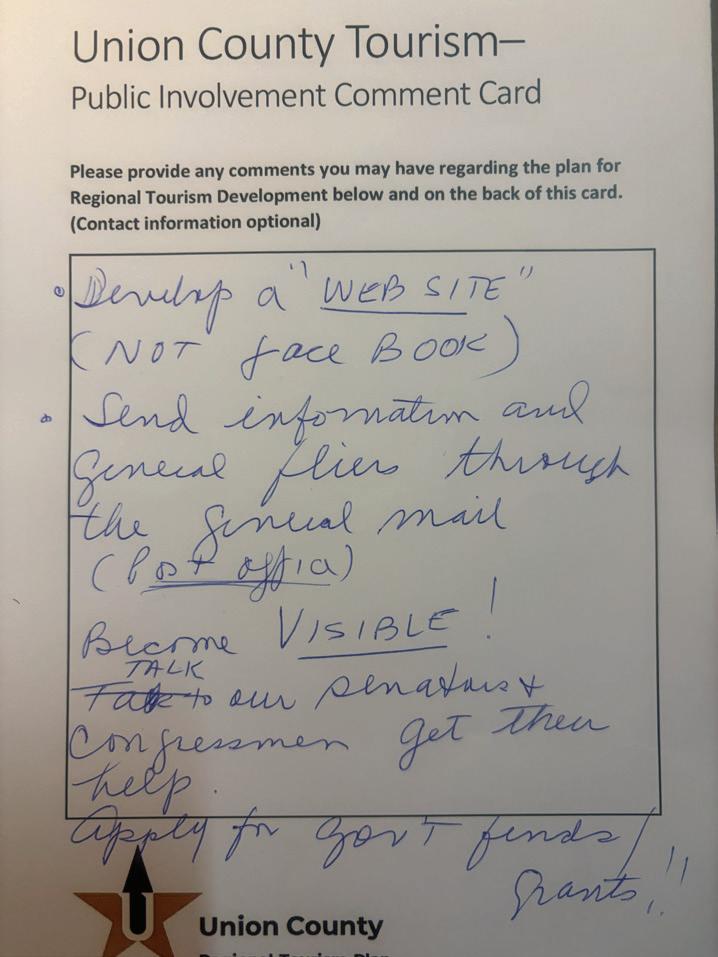 Union County Tourism–
Public Involvement Comment Card
Please provide any comments you may have regarding the plan for
Regional Tourism Development below and on the back of this card.
(Contact information optional)
• Develop a "WEB SITE"
(NOT face BOOK)
• Send information and
general fliers through
the general mail
(Post office)
Become VISIBLE!
TALK
to our senators &
Congressmen get their
help.
Apply for gov't funds/
grants!!
U
Union County
Regional Tourism Plan